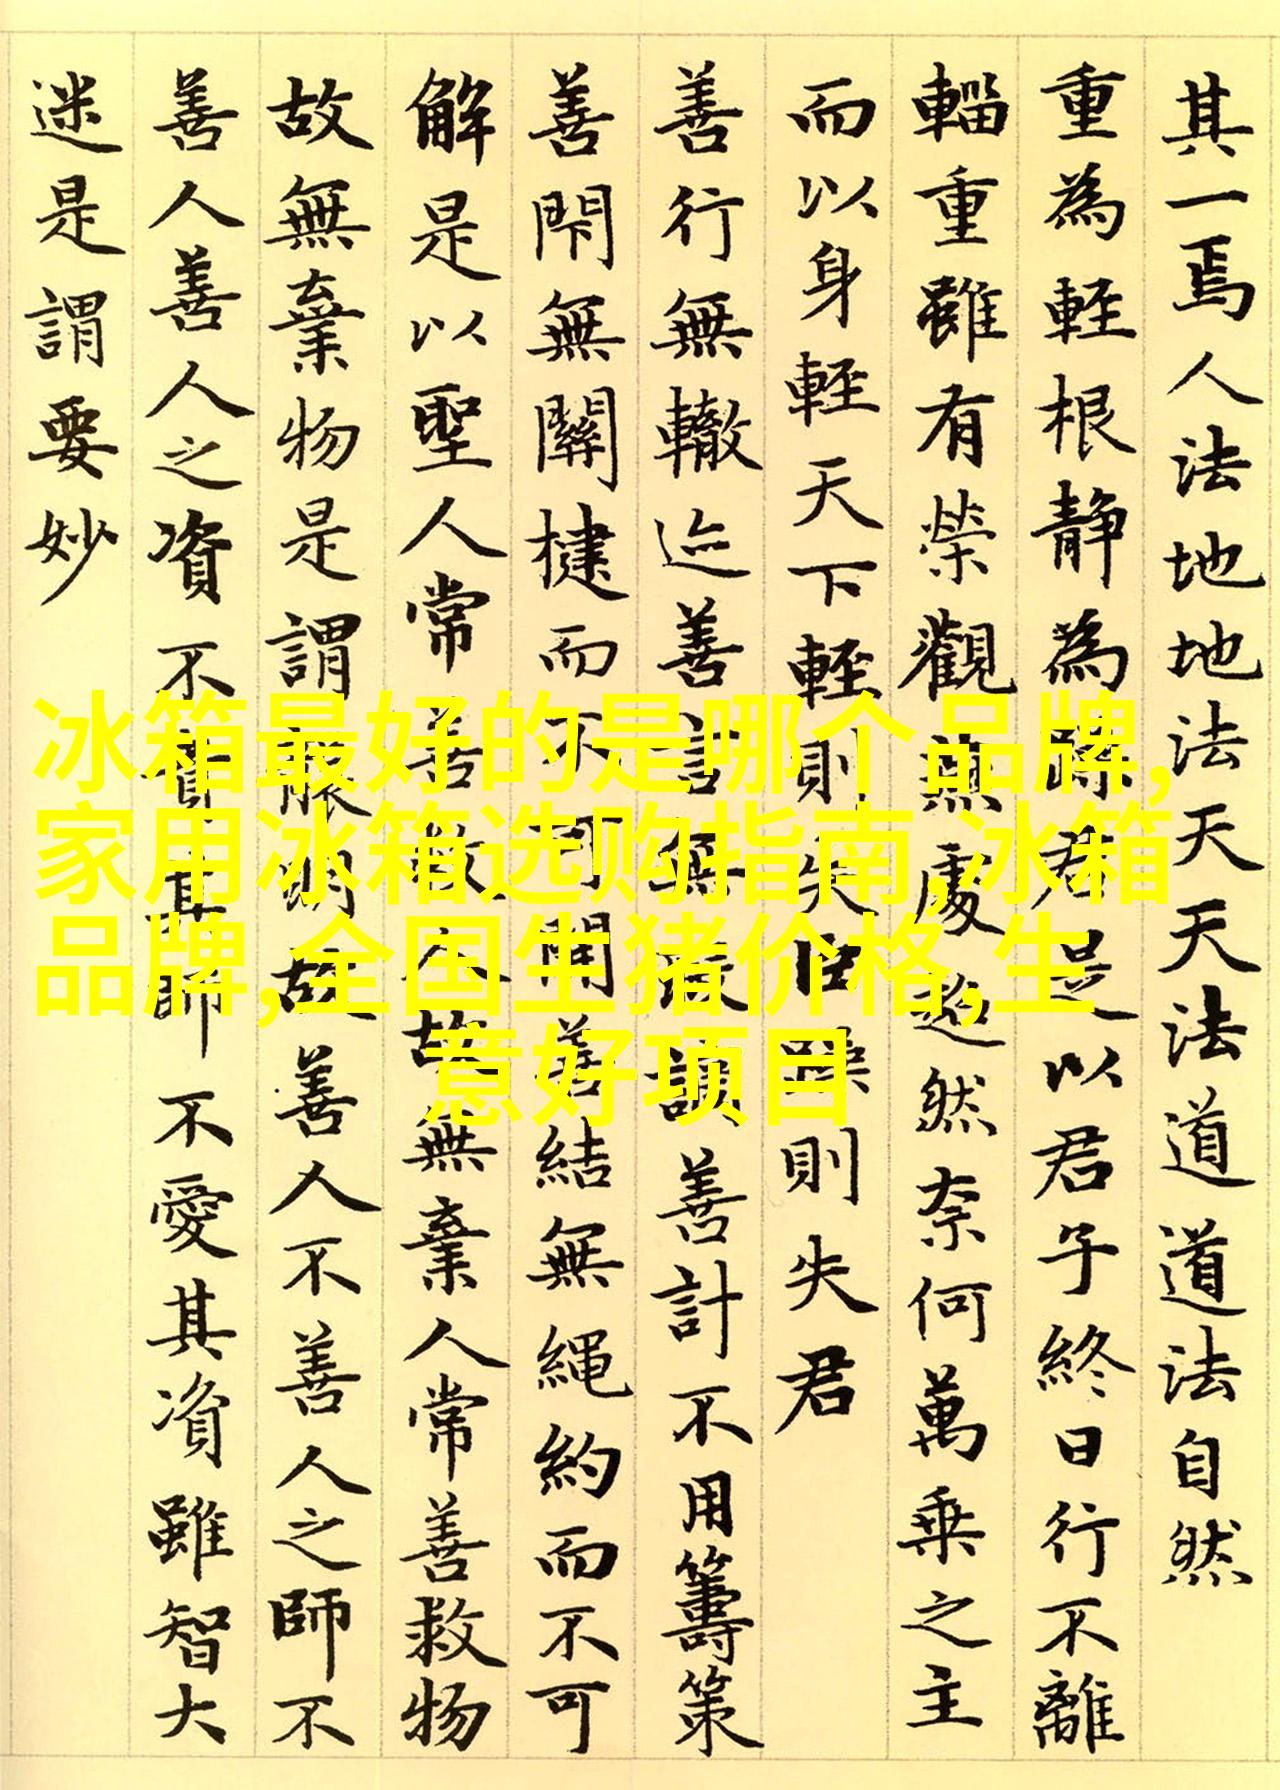 其一焉人法地地法天天法道道法自然
重為輕根靜為躁君是以君子終日行不離
輜重雖有榮觀燕處超然奈何萬乘之主
而以身輕天下輕則失臣躁則失君
善行無轍迹善言無瑕讁善計不用籌策
善閇無關揵而不可開善結無繩約而不可
解是以聖人常善救人故無棄人常善救物
故無棄物是謂襲明故善人不善人之師不
善人善人之資不貴其師不愛其資雖智大
迷是謂要妙
冰箱最好的是哪个品牌,
家用冰箱选购指南,冰箱
品牌,全国生猪价格,生
意好项目